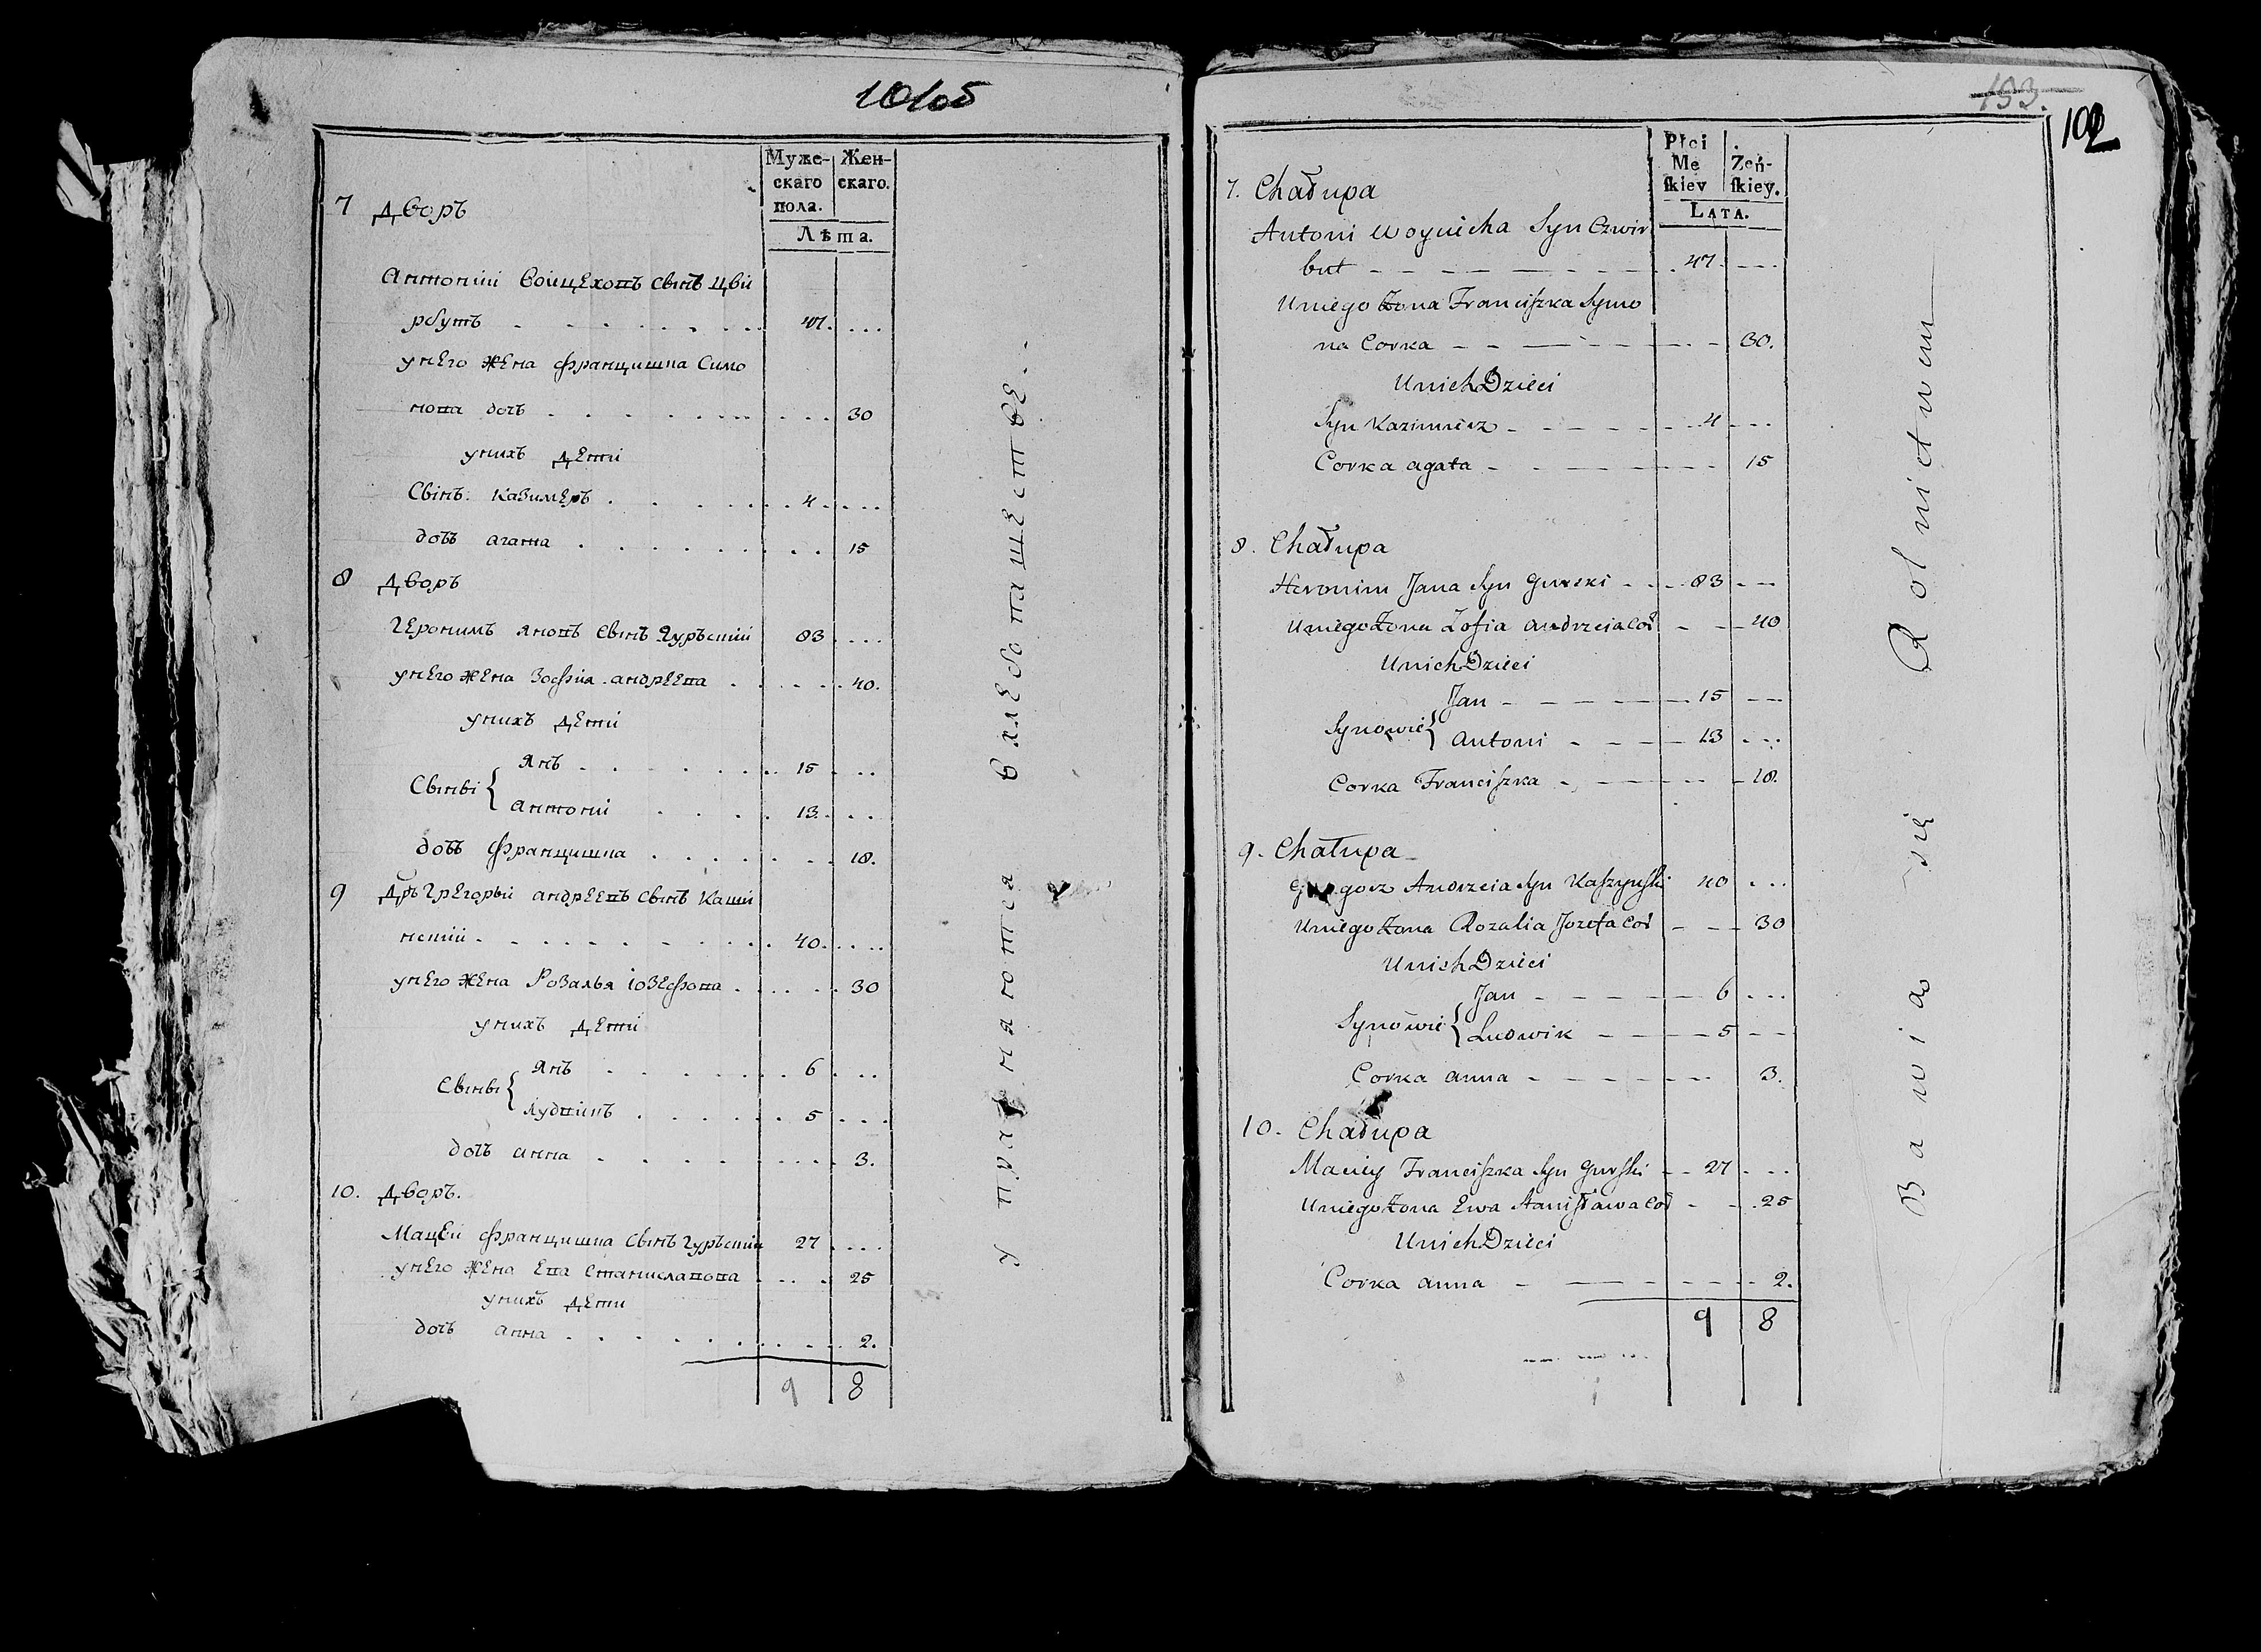 101об
Муже-
скаго
пола.
Жен-
скаго.
Лѣта.
7 Дворъ
Антоніи Воицеховъ Сынъ Цви
рбутъ 47.
унего жена Францишка Симо
нова дочь 30
унихъ дети
Сынъ Казимеръ 4
дочь агата 15
8 Дворъ
Геронимъ Яновъ Сынъ Гурьскіи 83
унего жена Зофія андреева 40.
унихъ дети
Янъ 15
Сыны
антоніи 13.
дочь Францишка 18.
9 Дръ Грегорыи андреевъ Сынъ Каши
нскіи 40.
унего жена Розалья іозефова 30
унихъ дети
Янъ 6
Сыны
Лудвикъ 5
дочь анна 3.
10. Дворъ.
Мацеи Францишка Сынъ Гурьскіи 27
унего жена Ева Станиславова 25
унихъ дети
дочь анна 2.
9 8
упражняются в хлебопашестве.
133.
102
Płci
Mę
ſkiey
Żeń-
ſkiey.
LATA.
7. Chałupa
Antoni Woyciecha Syn Czwir
but 47
Uniego Żona Franciszka Symo
na Corka 30.
Unich Dzieci
Syn Kazimierz 4
Corka agata 15
8. Chałupa
Heronim Jana Syn Gurski 83
Uniego Żona Zofia Andrzeia Cor 40
Unich Dzieci
Jan 15
Synowie
Antoni 13
Corka Franciszka 18.
9. Chałupa
Grzegorz Andrzeia Syn Kaszyński 40
Uniego Żona Rozalia Jozefa Cor 30
Unich Dzieci
Jan 6
Synowie
Ludwik 5
Corka anna 3.
10. Chałupa
Maciey Franciszka Syn Gurski 27
Uniego Żona Ewa Stanisława Cor 25
Unich Dzieci
Corka anna 2.
9 8
Bawią się Rolnictwem